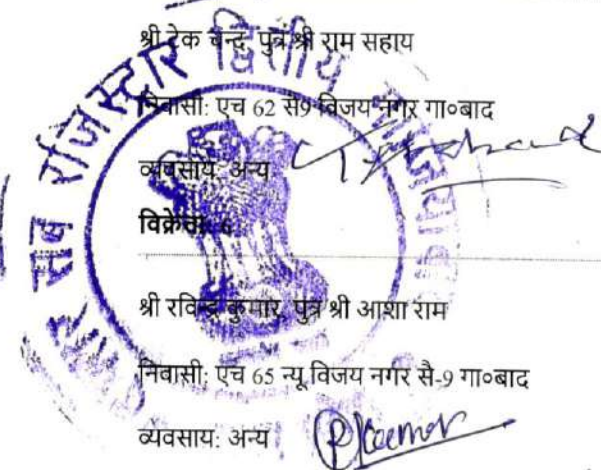 श्री टेक चन्द, पुत्र श्री राम सहाय
निवासी: एच 62 से9 विजय नगर गा०बाद
व्यवसाय: अन्य
विक्रेता: 6
श्री रविन्द्र कुमार, पुत्र श्री आशा राम
निवासी: एच 65 न्यू विजय नगर सै-9 गा०बाद
व्यवसाय: अन्य
सब रजिस्ट्रार द्वितीय